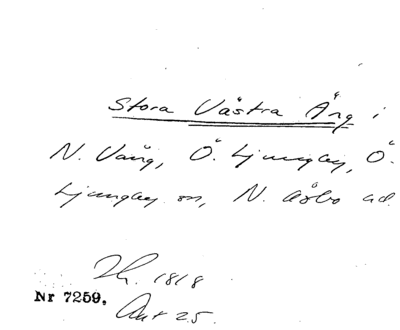 Stora Västra Äng i
N. Vång, Ö. Ljungby, Ö.
Ljungby sn, N. Åsbo hd.
1818
Nr 7259, Akt 25.